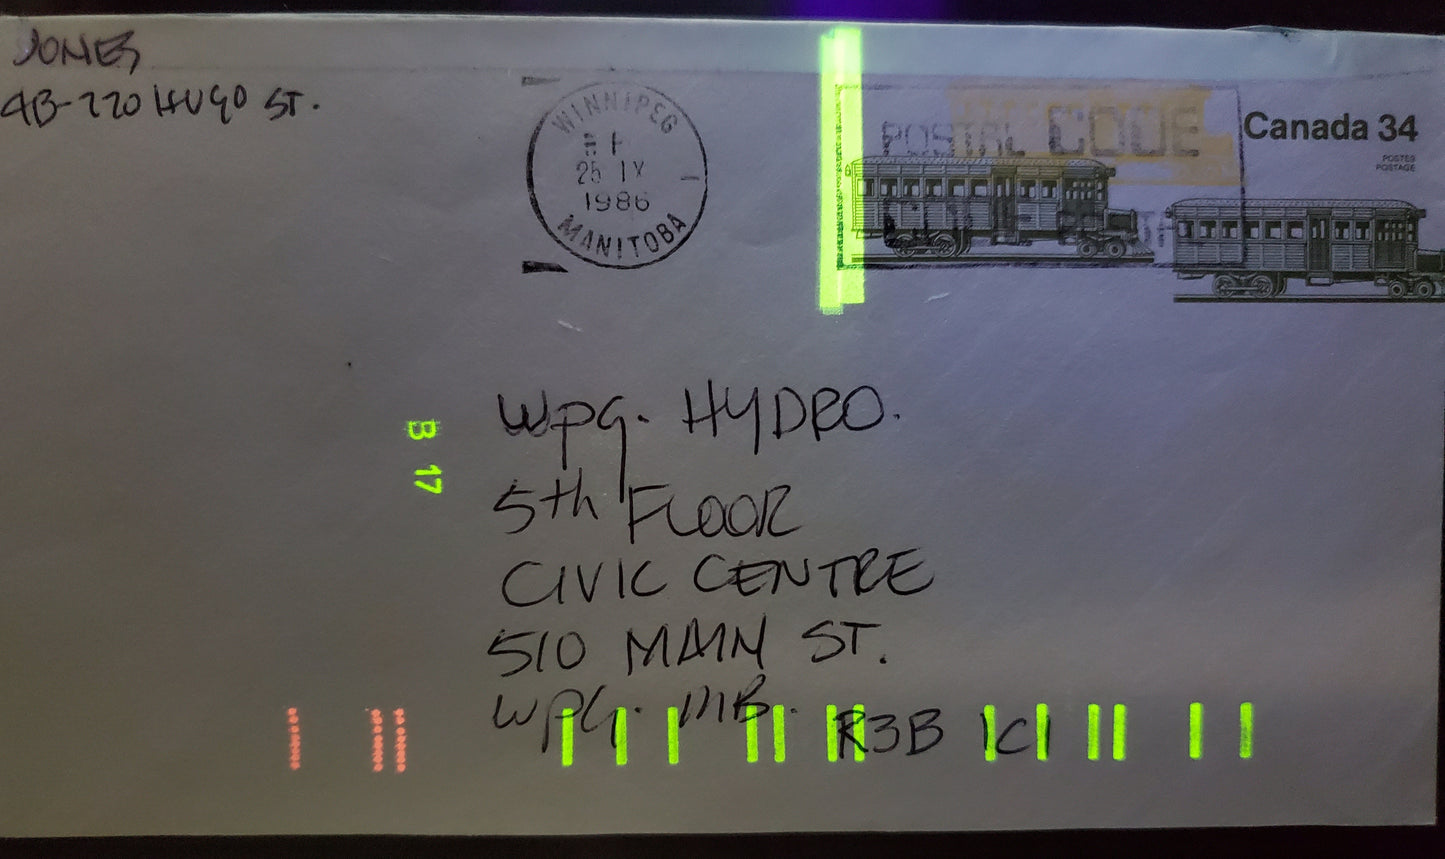 JONES
4B-220 HUGO ST.
WINNIPEG
25 IX
1986
MANITOBA
POSTAL CODE
Canada 34
POSTES
POSTAGE
B 17
Wpg. HYDRO.
5th FLOOR
CIVIC CENTRE
510 MAIN ST.
WPG. MB. R3B 1C1